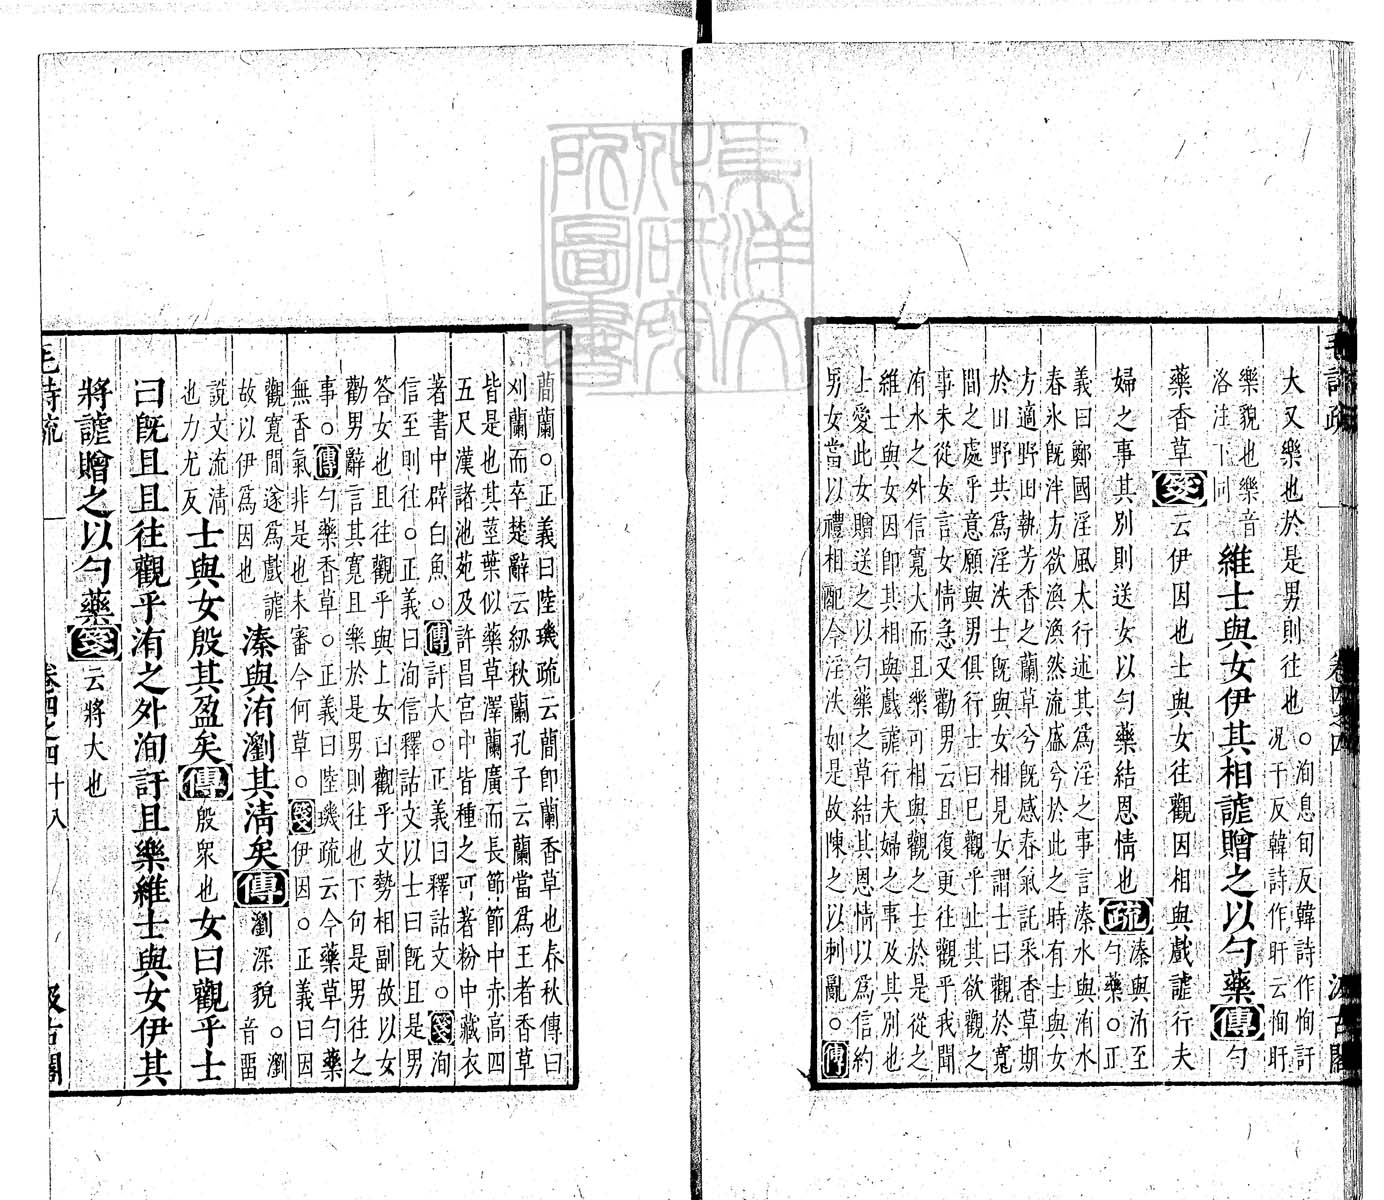 大又樂也於是男則往也○洵息旬反韓詩作恂訏
况于反韓詩作盱云恂盱
樂貌也樂音
洛注下同
維士與女伊其相謔贈之以勺藥傳勺
藥香草箋云伊因也士與女往觀因相與戲謔行夫
婦之事其別則送女以勺藥結恩情也疏溱與洧至
勺藥○正
義曰鄭國淫風大行述其爲淫之事言溱水與洧水
春冰旣泮方欲渙渙然流盛兮於此之時有士與女
方適野田執芳香之蘭草兮旣感春氣託采香草期
於田野共爲淫泆士旣與女相見女謂士曰觀於寬
間之處乎意願與男俱行士曰已觀乎止其欲觀之
事未從女言女情急又勸男云且復更往觀乎我聞
洧水之外信寬大而且樂可相與觀之士於是從之
維士與女因卽其相與戲謔行夫婦之事及其別也
士愛此女贈送之以勺藥之草結其恩情以爲信約
男女當以禮相配今淫泆如是故陳之以刺亂○傳
蕳蘭○正義曰陸璣疏云蕳卽蘭香草也春秋傳曰
刈蘭而卒楚辭云紉秋蘭孔子云蘭當爲王者香草
皆是也其莖葉似藥草澤蘭廣而長節節中赤高四
五尺漢諸池苑及許昌宮中皆種之可著粉中藏衣
著書中辟白魚○傳訏大○正義曰釋詁文○箋洵
信至則往○正義曰洵信釋詁文以士曰旣且是男
答女也且往觀乎與上女曰觀乎文勢相副故以女
勸男辭言其寬且樂於是男則往也下句是男往之
事○傳勺藥香草○正義曰陸璣疏云今藥草勺藥
無香氣非是也未審今何草○箋伊因○正義曰因
觀寬間遂爲戲謔
故以伊爲因也
溱與洧瀏其淸矣傳瀏深貌○瀏
音畱
說文流淸
也力尤反
士與女殷其盈矣傳殷衆也女曰觀乎士
曰旣且且往觀乎洧之外洵訏且樂維士與女伊其
將謔贈之以勺藥箋云將大也
毛詩疏
卷四之四
十八
汲古閣
東洋文化研究所圖書